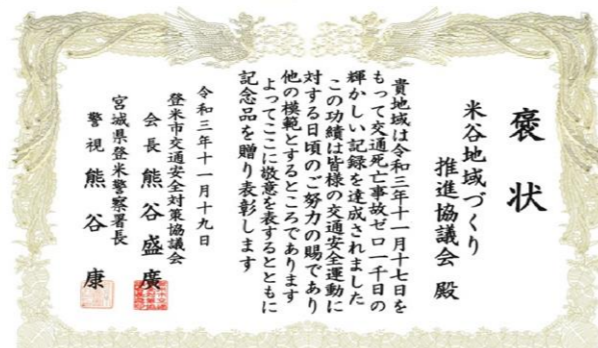 褒状
米谷地域づくり
推進協議会 殿
貴地域は令和三年十一月十七日を
もって交通死亡事故ゼロ一千日の
輝かしい記録を達成されました
この功績は皆様の交通安全運動に
対する日頃のご努力の賜であり
他の模範とするところであります
よってここに敬意を表するとともに
記念品を贈り表彰します
令和三年十一月十九日
登米市交通安全対策協議会
会長 熊谷盛廣
宮城県登米警察署長
警視 熊谷 康